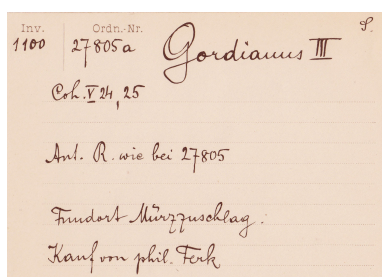 Inv. Ordn.-Nr. S.
1100 27805a Gordianus III
Coh. V 24, 25
Ant. R. wie bei 27805
Fundort Mürzzuschlag.
Kauf von phil. Ferk